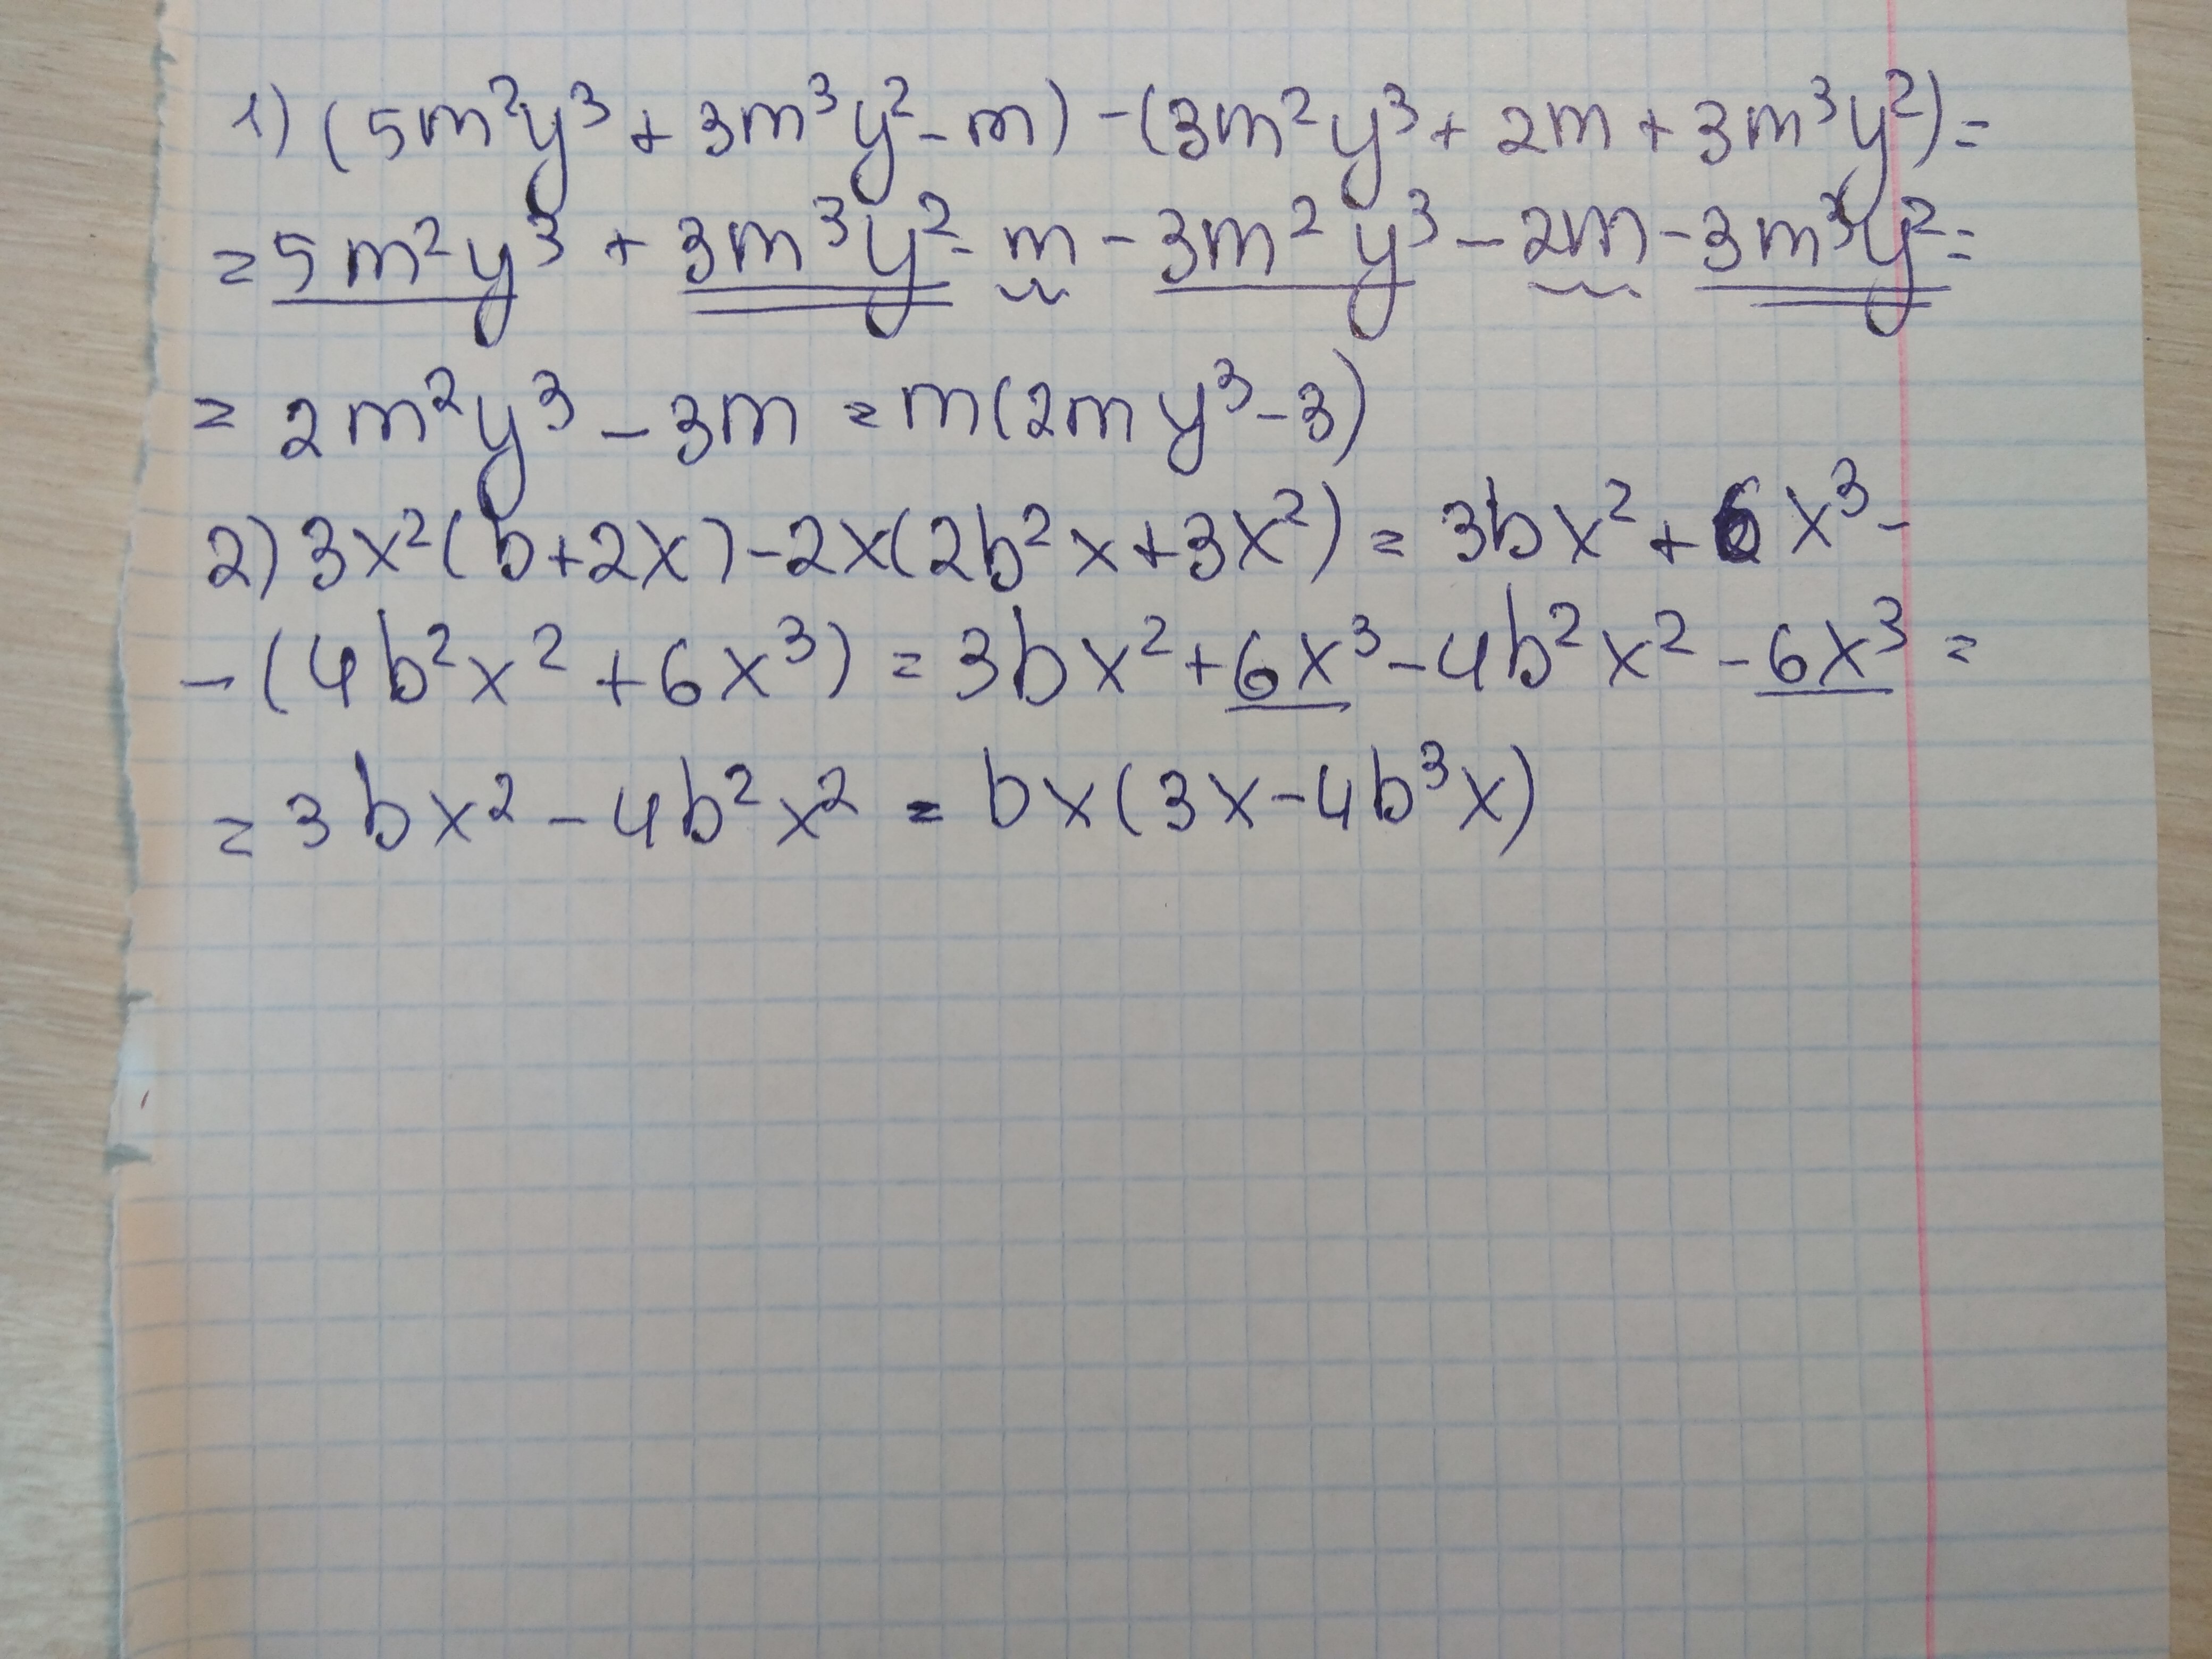 1) (5m²y³ + 3m³y² - m) - (3m²y³ + 2m + 3m³y²) =
= 5m²y³ + 3m³y² - m - 3m²y³ - 2m - 3m³y² =
= 2m²y³ - 3m = m(2my³ - 3)
2) 3x²(b + 2x) - 2x(2b²x + 3x²) = 3bx² + 6x³ -
- (4b²x² + 6x³) = 3bx² + 6x³ - 4b²x² - 6x³ =
= 3bx² - 4b²x² = bx(3x - 4b³x)